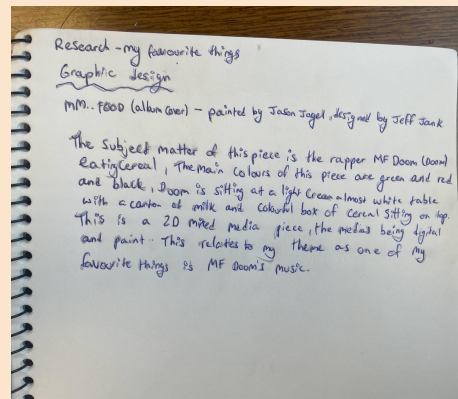 Research - my favourite things
Graphic design
MM.. FOOD (album cover) - painted by Jason Jagel, designed by Jeff Jank
The subject matter of this piece is the rapper MF Doom (Doom)
Eating Cereal, The main colours of this piece are green and red
and black, Doom is sitting at a light Cream almost white table
with a carton of milk and colourful box of cereal sitting on top.
This is a 2D mixed media piece, the medias being digital
and paint. This relates to my theme as one of my
favourite things is MF Doom's music.